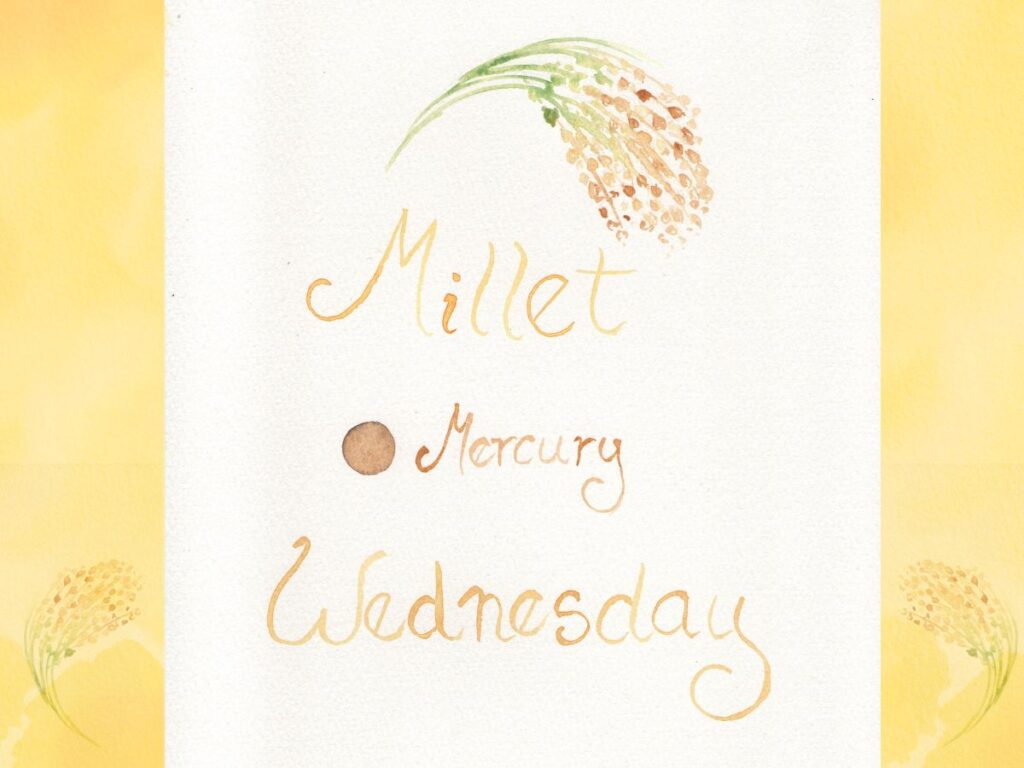 Millet
Mercury
Wednesday